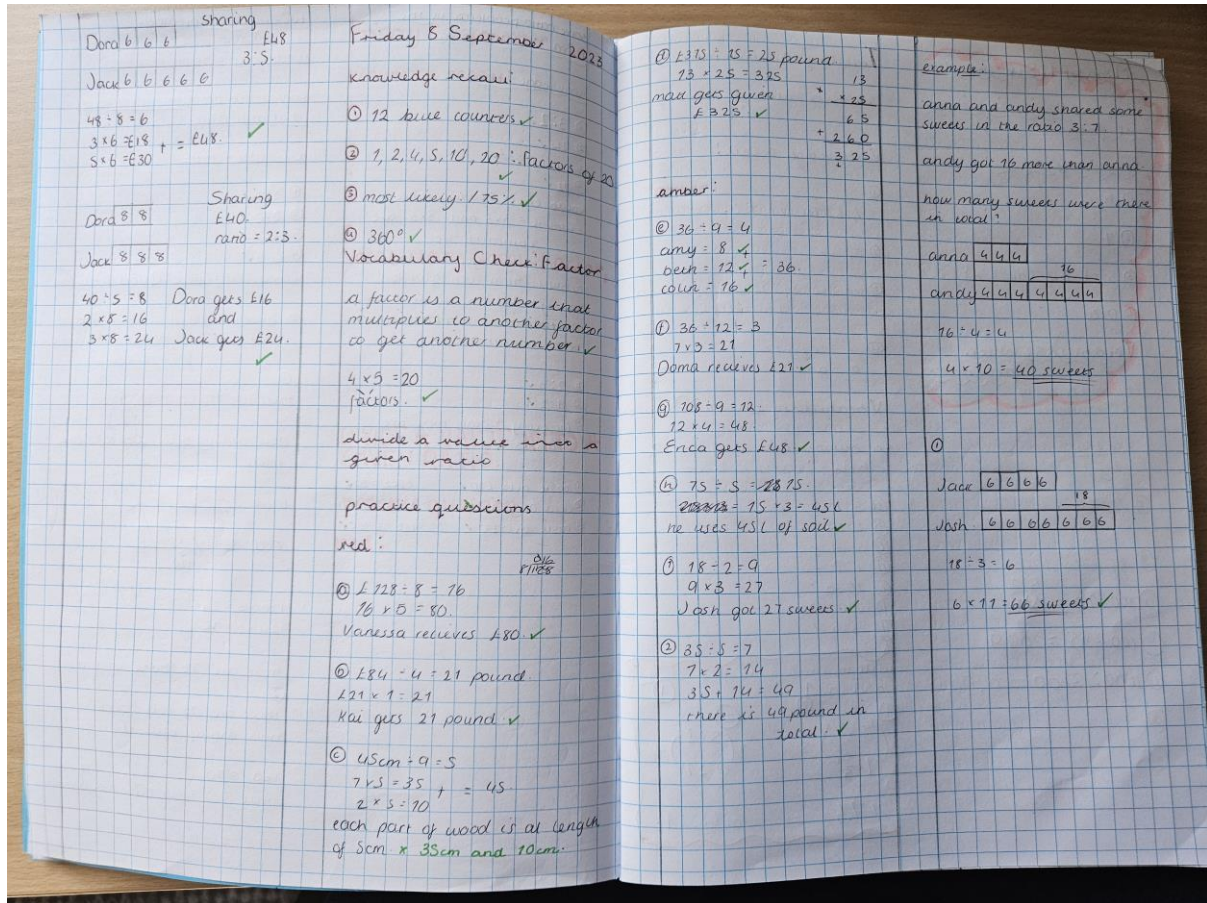 Sharing
Dora 6 6 6
£48
3:5.
Jack 6 6 6 6 6
48 ÷ 8 = 6
3 x 6 = £18
5 x 6 = £30
+ = £48.
Sharing
Dora 8 8
£40.
ratio = 2:3.
Jack 8 8 8
40 ÷ 5 = 8 Dora gets £16
2 x 8 = 16 and
3 x 8 = 24 Jack gets £24.
Friday 8 September 2023
knowledge recall:
① 12 blue counters
② 1, 2, 4, 5, 10, 20 : factors of 20
③ most likely. / 75%
④ 360°
Vocabulary Check: Factor
a factor is a number that
multiplies to another factor
to get another number.
4 x 5 = 20
factors.
divide a value into a
given ratio
practice questions
red:
ⓐ £128 ÷ 8 = 16
16 x 5 = 80.
Vanessa recieves £80.
ⓑ £84 ÷ 4 = 21 pound.
£21 x 1 = 21
Kai gets 21 pound
ⓒ 45cm ÷ 9 = 5
7 x 5 = 35
2 x 5 = 10
+ = 45.
each part of wood is at length
of 5cm x 35cm and 10cm.
ⓓ £375 ÷ 15 = 25 pound
13 x 25 = 325
gets given
£325
13
x 25
65
+ 260
325
amber:
ⓔ 36 ÷ 9 = 4
amy = 8
beth = 12
colin = 16
+ = 36.
ⓕ 36 ÷ 12 = 3
7 x 3 = 21
recieves £21
ⓖ 108 ÷ 9 = 12.
12 x 4 = 48.
Erica gets £48
ⓗ 75 ÷ 5 = 15.
= 15 x 3 = 45L
he uses 45L of soil
① 18 ÷ 2 = 9
9 x 3 = 27
Josh got 27 sweets
② 35 ÷ 5 = 7
7 x 2 = 14
35 + 14 = 49
there is 49 pound in
total.
example:
anna and andy shared some
sweets in the ratio 3:7.
andy got 16 more than anna.
how many sweets were there
in total?
anna 4 4 4
16
andy 4 4 4 4 4 4 4
16 ÷ 4 = 4
4 x 10 = 40 sweets
①
Jack 6 6 6 6
18
Josh 6 6 6 6 6 6 6
18 ÷ 3 = 6
6 x 11 = 66 sweets